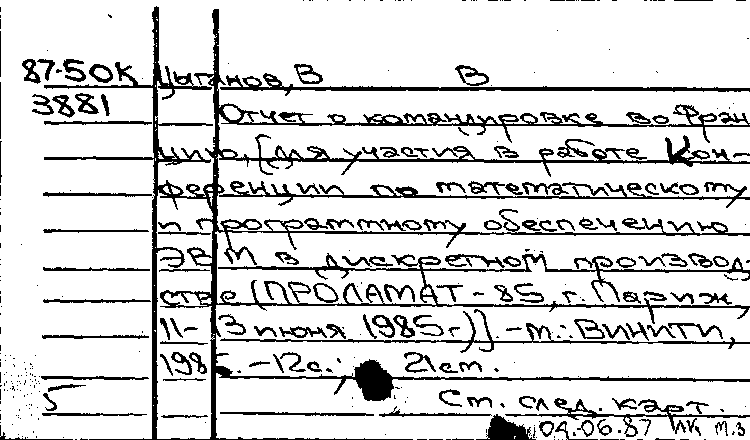 87-50К Цыганов, В В
3881 Отчет о командировке во Фран-
цию, [для участия в работе Кон-
ференции по математическому
и программному обеспечению
ЭВМ в дискретном производ-
стве (ПРОЛАМАТ-85, г. Париж,
11-13 июня 1985г)] -м.: ВИНИТИ,
1985. -12с.; 21см.
5 См. след. карт.
04.06.87 МК м.з